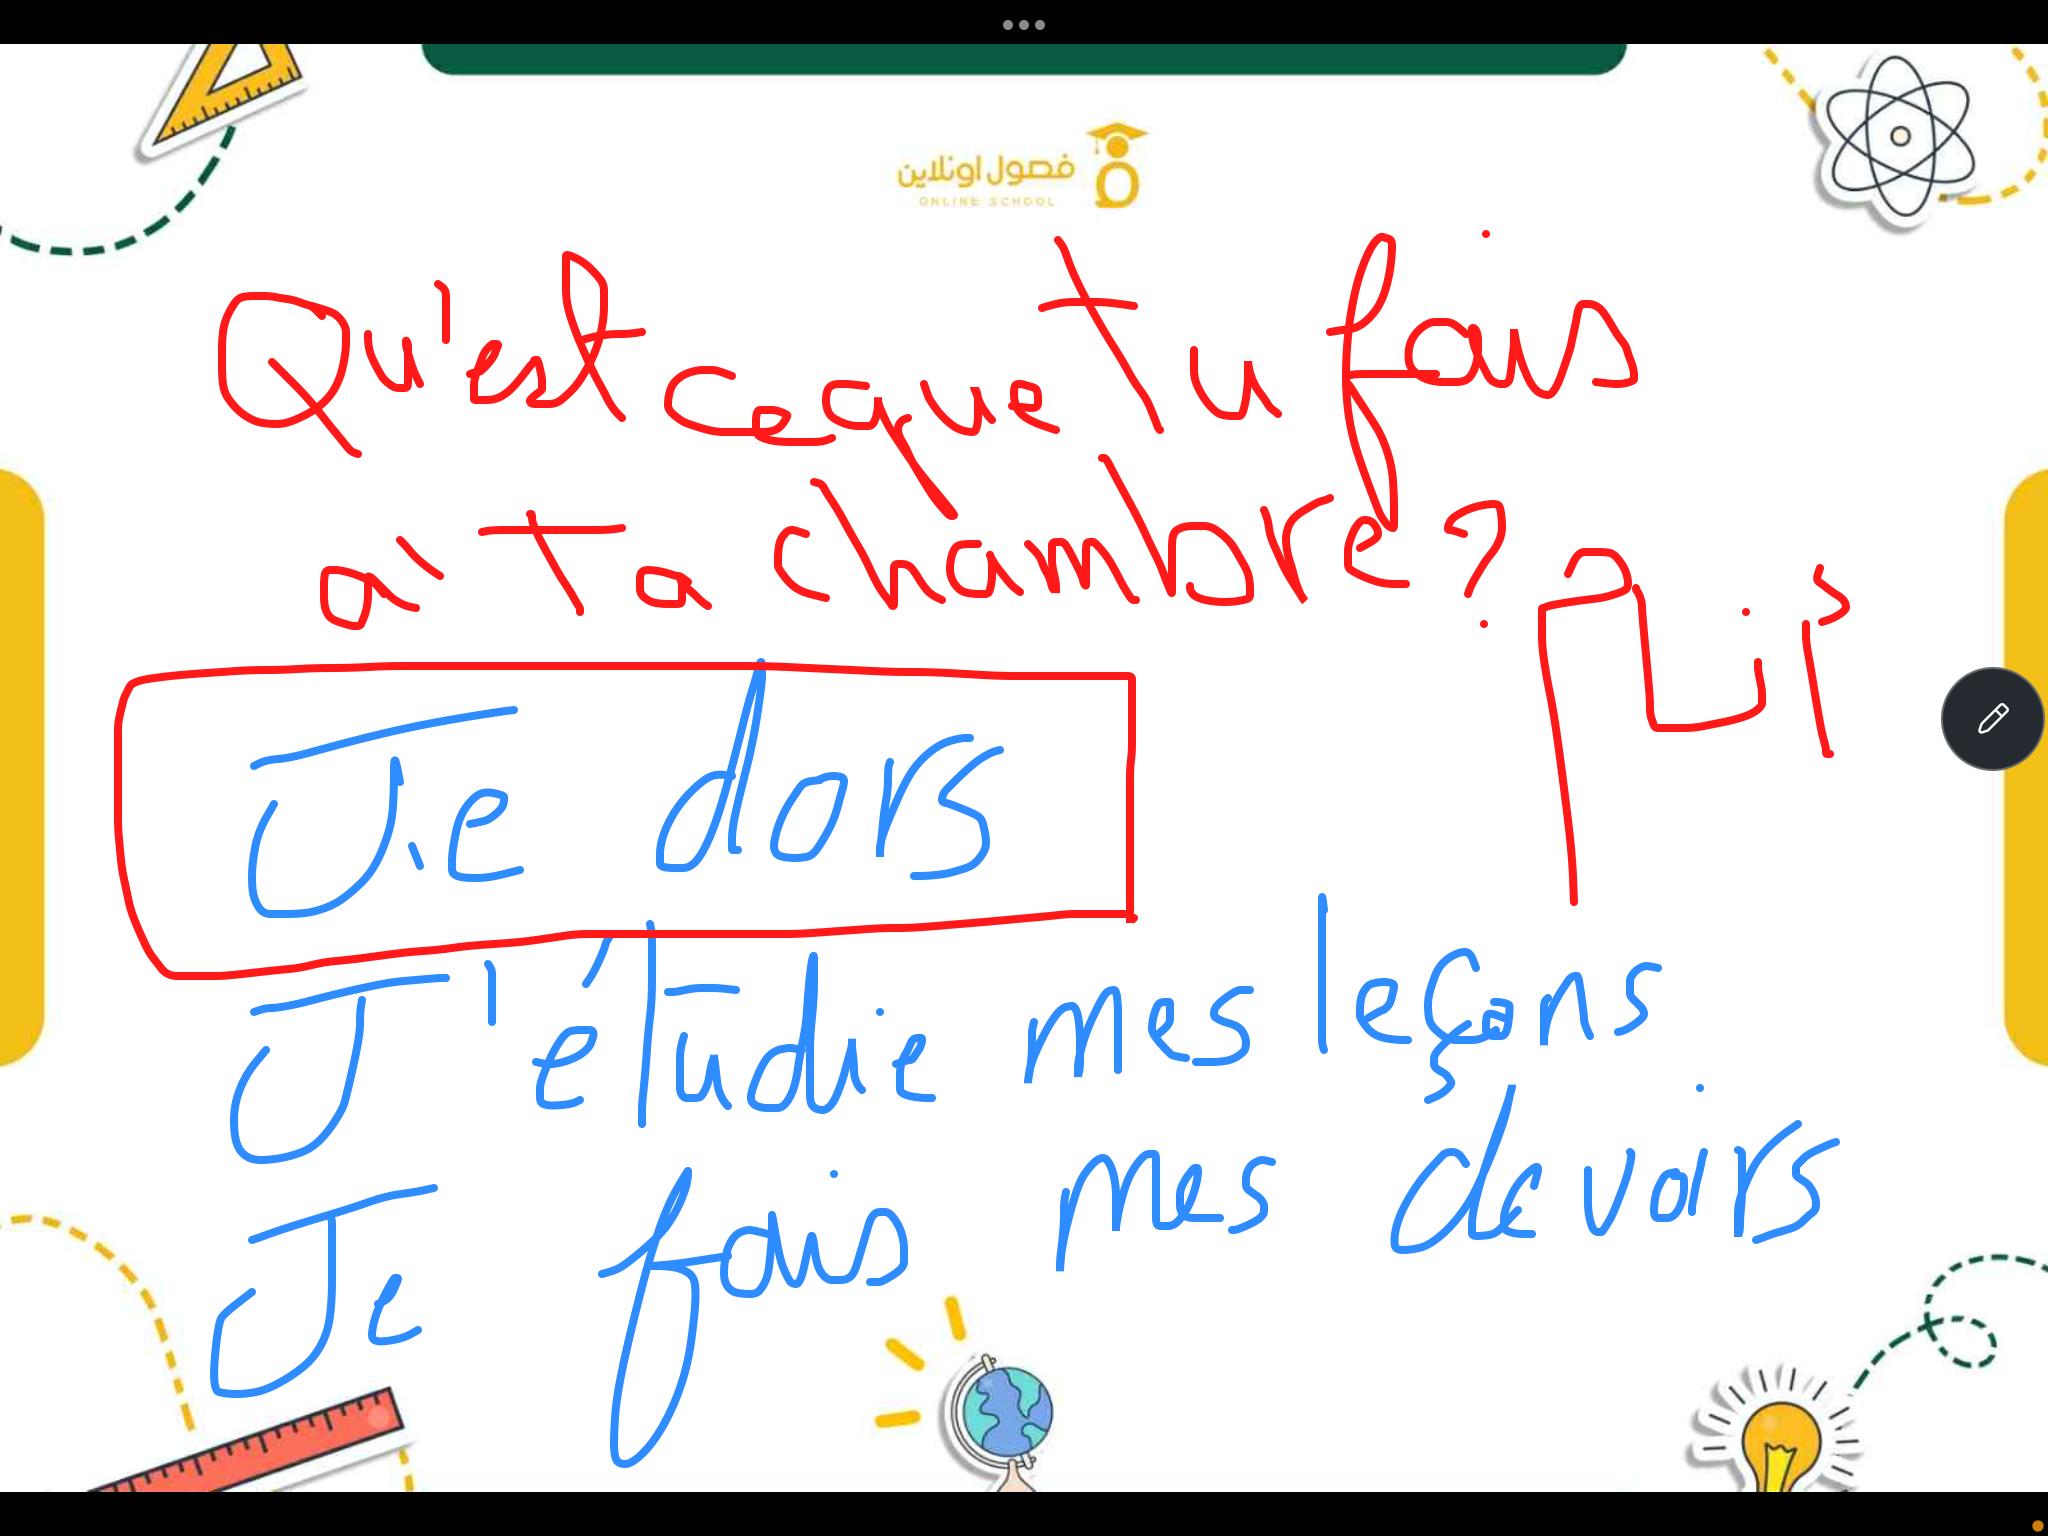 فصول اونلاين
ONLINE SCHOOL
Qu'est ce que tu fais
à ta chambre?
Je dors
J'étudie mes leçons
Je fais mes devoirs